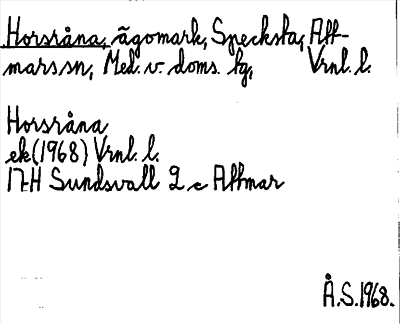 Horsråna, ägomark, Specksta, Att-
marssn, Med. v. doms. tg, Vrnl. l.
Horsråna
ek (1968) Vrnl. l.
17H Sundsvall 2 c Attmar
Å.S.1968.